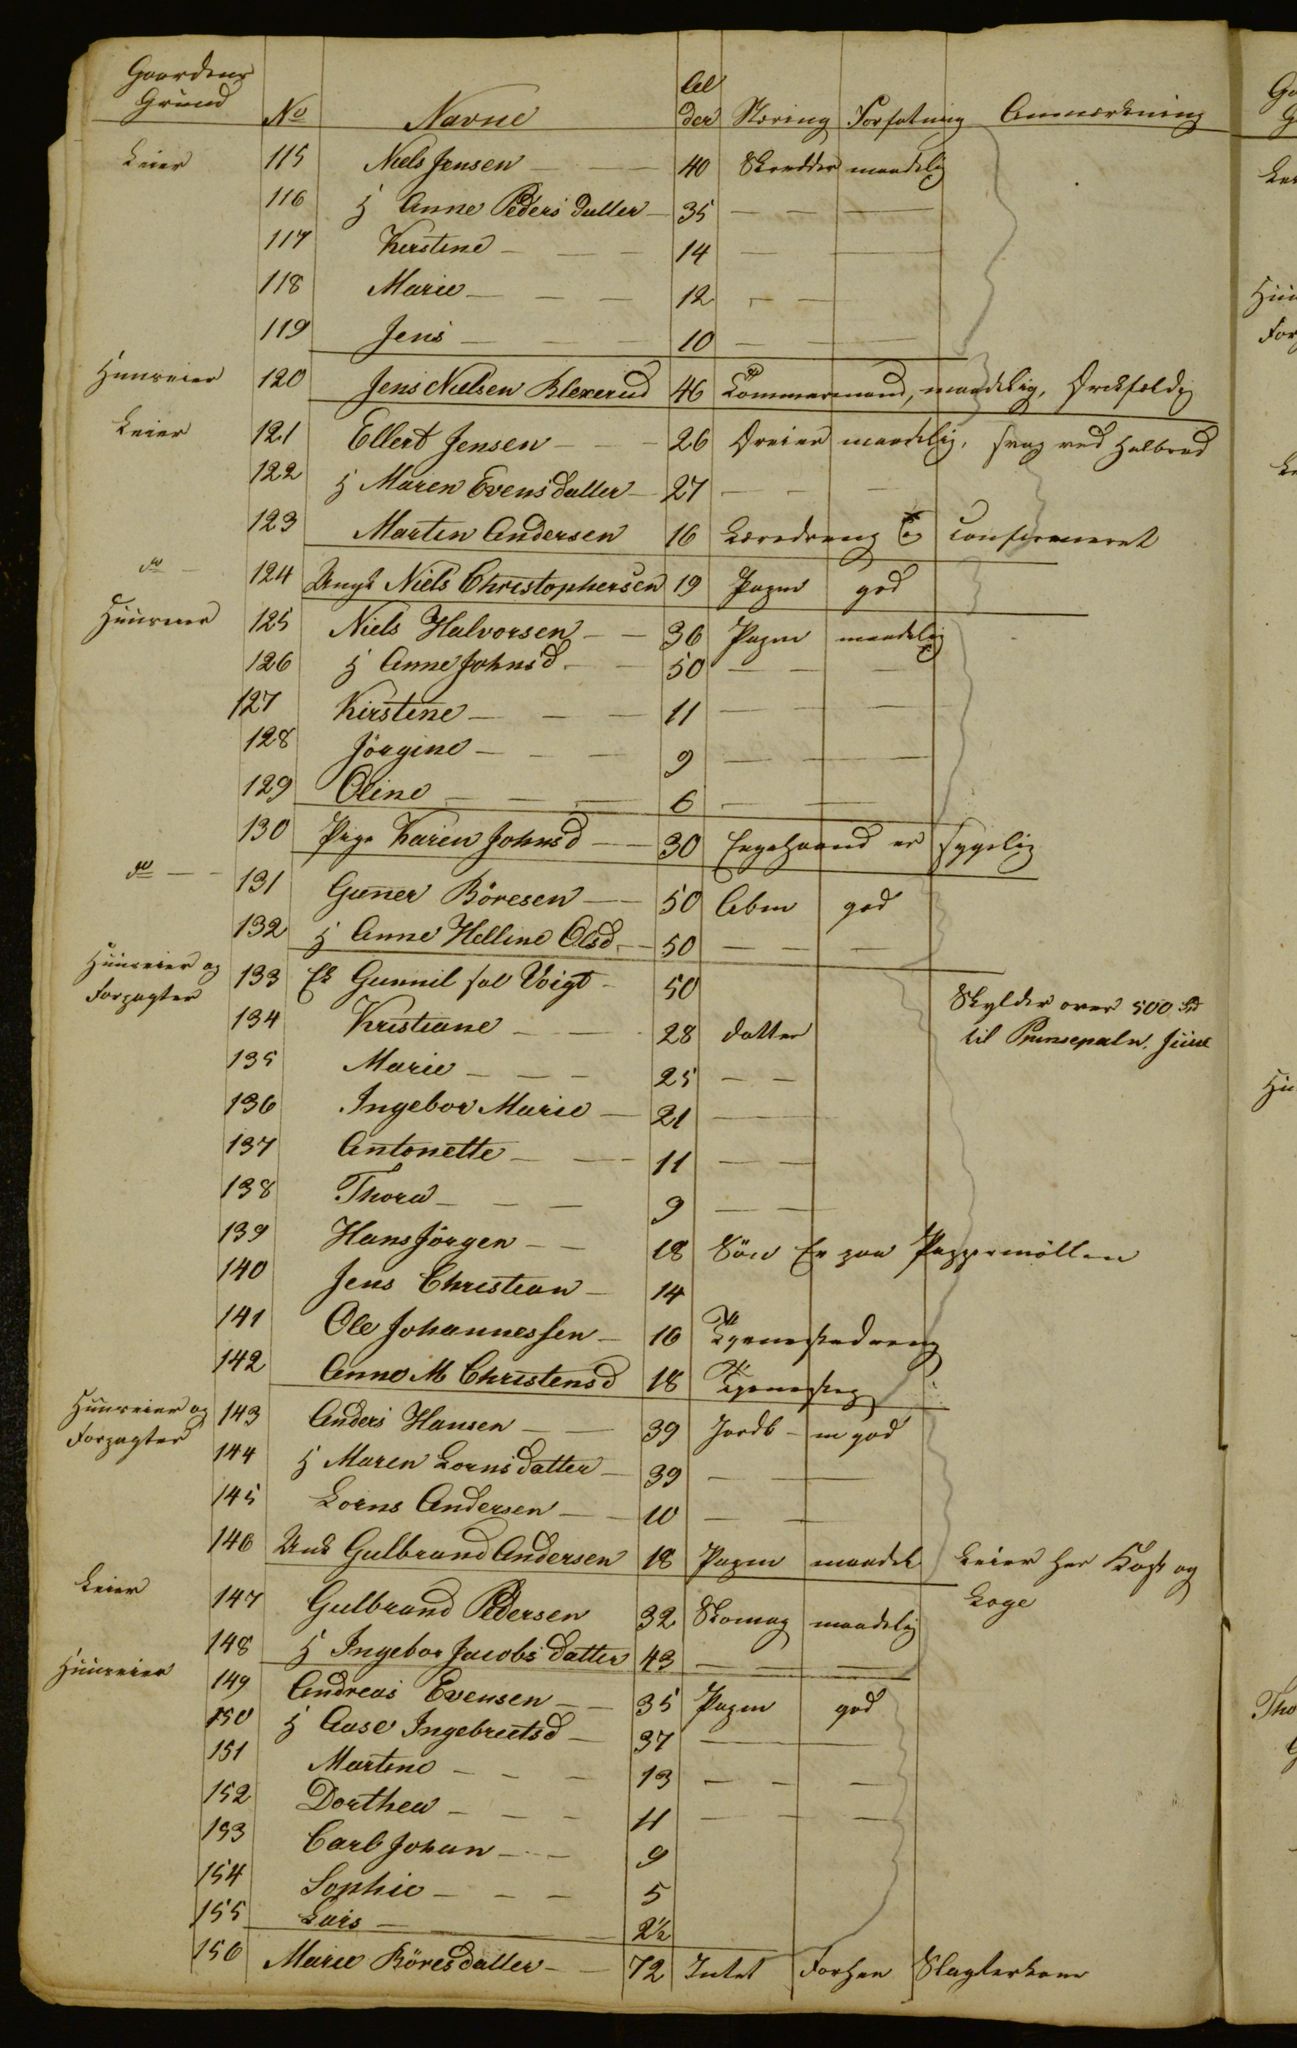 Gaardens Grund No Navne Al der Næring Forfatning Anmærkning
Leier 115 Niels Jensen 40 Skredder maadelig
116 H Anne Peders datter 35
117 Kerstine 14
118 Marie 12
119 Jens 10
Huuseier 120 Jens Nielsen Blexerud 46 Tømmermand, maadelig, Drikfældig
Leier 121 Ellert Jensen 26 Dreier maadelig, svag ved Halbrud
122 H Maren Evensdatter 27
123 Marten Andersen 16 Læredreng confirmeret
do 124 Ungk Niels Christophersen 19 Papm god
Huuseier 125 Niels Halvorsen 36 Papm maadelig
126 H Anne Johnsd 50
127 Kirstine 11
128 Jörgine 9
129 Oline 6
130 Pige Karen Johnsd 30 er sygelig
do 131 Guner Böresen 50 Abm god
132 H Anne Helline Olsd 50
Huuseier og Forpagter 133 Ek Gunnil sal Voigt 50 Skylder over 500 Sp
134 Kristiane 28 datter til Prinsepaln. Juul
135 Marie 25
136 Ingebor Marie 21
137 Antonette 11
138 Thora 9
139 Hans Jörgen 18 Sön Er paa Pappermöllen
140 Jens Christian 14
141 Ole Johannessen 16 Tjenestedreng
142 Anne M Christensd 18 Tjenestep
Huuseier og Forpagter 143 Anders Hansen 39 Jordb m god
144 H Maren Lornsdatter 39
145 Lorns Andersen 10
146 Unk Gulbrand Andersen 18 Papm maadel Leier her Kost og
Leier 147 Gulbrand Pedersen 32 Skomag maadelig Loge
148 H Ingebor Jacobsdatter 43
Huuseier 149 Andreas Evensen 35 Papm god
150 H Aase Ingebretsd 37
151 Martine 13
152 Dorthea 11
153 Carl Johan 9
154 Sophie 5
155 Lars 2½
156 Marie Böresdatter 72 Intet Forhen Slagterkone